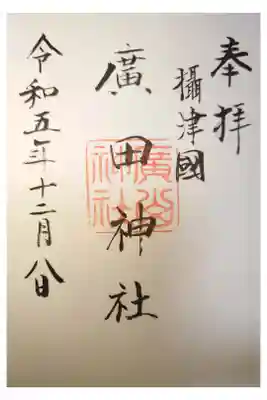 奉拝
攝津國
廣田神社
廣田神社
令和五年十二月八日